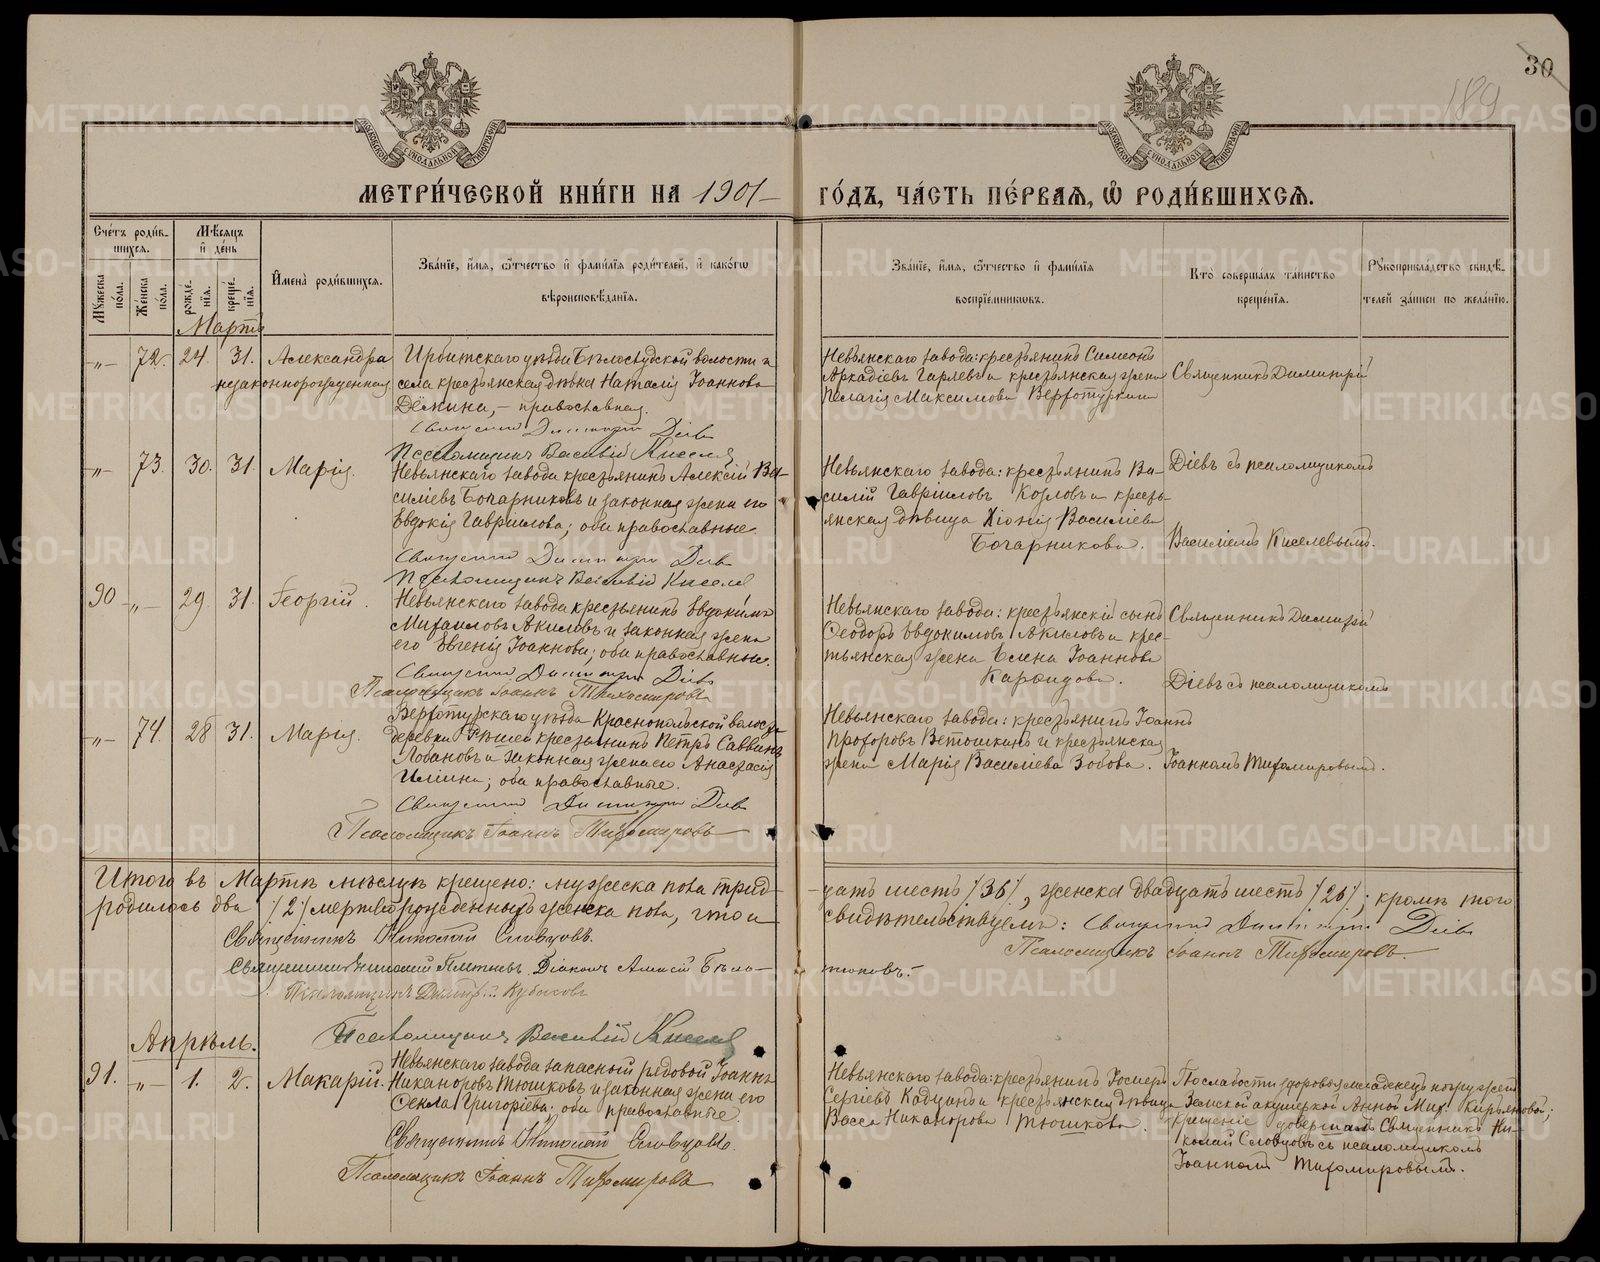 30
189
МОСКОВСКОЙ СѴНОДАЛЬНОЙ ТИПОГРАФІИ
МОСКОВСКОЙ СѴНОДАЛЬНОЙ ТИПОГРАФІИ
МЕТРИ́ЧЕСКОЙ КНИ́ГИ НА 1901 ГО́ДЪ, ЧА́СТЬ ПЕ́РВАЯ, Ѡ РОДИ́ВШИХСЯ.
Счетъ родив-
шихся.
Мѣсяцъ
и день
Мужеска пола.
Женска пола.
рожде-
нія.
креще-
нія.
Имена родившихся.
Званіе, имя, отчество и фамилія родителей, и какого
вѣроисповѣданія.
Званіе, имя, отчество и фамилія
воспріемниковъ.
Кто совершалъ таинство
крещенія.
Рукоприкладство свидѣ-
телей записи по желанію.
Мартъ
-„- 72. 24. 31. Александра
незаконнорожденная
Ирбитскаго уѣзда Бѣлослудской волости и
села крестьянская дѣвка Наталія Іоаннова
Дёмина, - православная.
Священникъ Димитрій Діевъ
Псаломщикъ Василій Киселевъ
Невьянскаго завода: крестьянинъ Симеонъ
Аркадіевъ Гаряевъ и крестьянская жена
Пелагія Максимова Верхотуркина
Священникъ Димитрій
-„- 73. 30. 31. Марія.
Невьянскаго завода крестьянинъ Алексій Ва-
силіевъ Богарниковъ и законная жена его
Евдокія Гавриилова; оба православные.
Священникъ Димитрій Діевъ
Псаломщикъ Василій Киселевъ
Невьянскаго завода: крестьянинъ Ва-
силій Гавріиловъ Козловъ и кресть-
янская дѣвица Хіонія Васильева
Богарникова.
Діевъ съ псаломщикомъ
Василіемъ Киселевымъ.
90 -„- 29. 31. Георгій.
Невьянскаго завода крестьянинъ Евдокимъ
Михаиловъ Акиловъ и законная жена
его Евгенія Іоаннова; оба православные.
Священникъ Димитрій Діевъ
Псаломщикъ Іоаннъ Тихомировъ
Невьянскаго завода: крестьянскій сынъ
Ѳеодоръ Евдокимовъ Акиловъ и крес-
тьянская жена Елена Іоаннова
Священникъ Димитрій
Діевъ съ псаломщикомъ
-„- 74. 28 31. Марія.
Верхотурскаго уѣзда Краснопольской волости
деревни крестьянинъ Петръ Саввинъ
Лобановъ и законная жена его Анастасія
оба православные.
Священникъ Димитрій Діевъ
Псаломщикъ Іоаннъ Тихомировъ
Невьянскаго завода: крестьянинъ Іоаннъ
Прохоровъ Ветошкинъ и крестьянская
жена Марія Васильева Зобова.
Іоанномъ Тихомировымъ.
Итого въ Мартѣ мѣсяцѣ крещено: мужеска пола трид-
цать шесть /36/, женска двадцать шесть /26/; кромѣ того
родилось два /2/ мертворожденныхъ женска пола, что и
свидѣтельствуемъ: Священникъ Димитрій Діевъ
Священникъ Николай Словцовъ.
Псаломщикъ Іоаннъ Тихомировъ.
Священникъ Николай Плетневъ. Діаконъ Алексій Бѣло-
Псаломщикъ Димитрій Кубасовъ
Псаломщикъ Василій Киселевъ
Апрѣль.
91. -„- 1. 2. Макарій.
Невьянскаго завода запасный рядовой Іоаннъ
Никаноровъ Тюшковъ и законная жена его
Ѳекла Григоріева; оба православные.
Священникъ Николай Словцовъ.
Псаломщикъ Іоаннъ Тихомировъ
Невьянскаго завода: крестьянинъ
Сергіевъ и крестьянская дѣвица
Васса Никанорова Тюшкова.
По слабости здоровья младенецъ погруженъ
Земской акушеркой Анной Мих. Кирьяновой;
крещеніе довершалъ Священникъ Ни-
колай Словцовъ съ псаломщикомъ
Іоанномъ Тихомировымъ.
METRIKI.GASO-URAL.RU